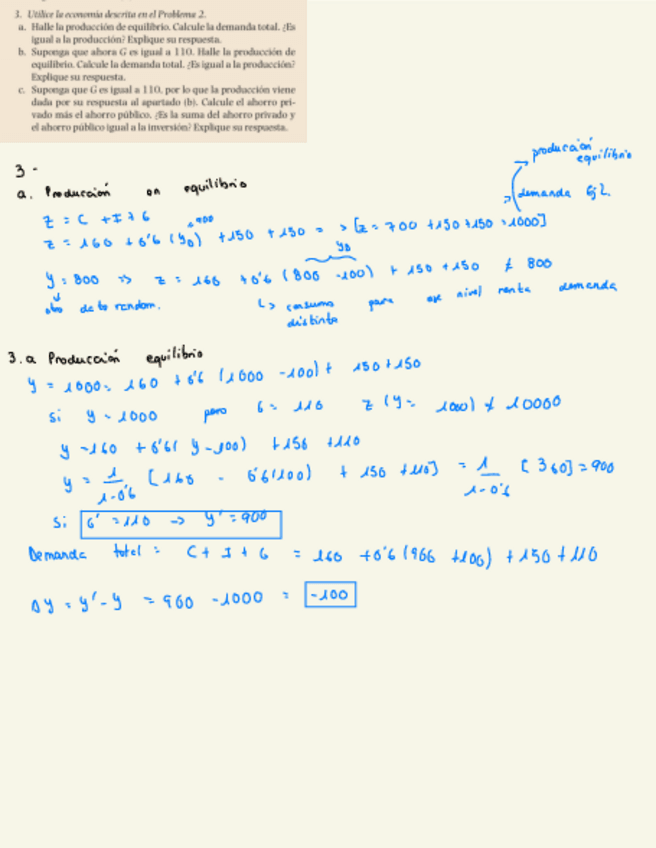 3. Utilice la economía descrita en el Problema 2.
a. Halle la producción de equilibrio. Calcule la demanda total. ¿Es
igual a la producción? Explique su respuesta.
b. Suponga que ahora G es igual a 110. Halle la producción de
equilibrio. Calcule la demanda total. ¿Es igual a la producción?
Explique su respuesta.
c. Suponga que G es igual a 110, por lo que la producción viene
dada por su respuesta al apartado (b). Calcule el ahorro pri-
vado más el ahorro público. ¿Es la suma del ahorro privado y
el ahorro público igual a la inversión? Explique su respuesta.
producción
equilibrio
3 -
a. Producción en equilibrio
demanda Ej 2.
Z = C + I + G
900
Z = 160 + 0'6 (YD) + 150 + 150 = > [Z = 700 + 150 + 150 = 1000]
YD
Y = 800 => Z = 160 + 0'6 (800 - 100) + 150 + 150 ≠ 800
dato random.
↳ consumo para ese nivel renta demanda
distinta
3.a Producción equilibrio
Y = 1000 = 160 + 0'6 (1000 - 100) + 150 + 150
Si Y = 1000 pero G = 110 Z (Y = 1000) ≠ 10000
Y = 160 + 0'6 ( Y - 100) + 150 + 110
Y = 1/1-0'6 [160 - 0'6(100) + 150 + 110] = 1/1-0'6 [360] = 900
Si G' = 110 -> Y' = 900
Demanda total = C + I + G = 160 + 0'6 (900 + 100) + 150 + 110
ΔY = Y' - Y = 900 - 1000 = -100